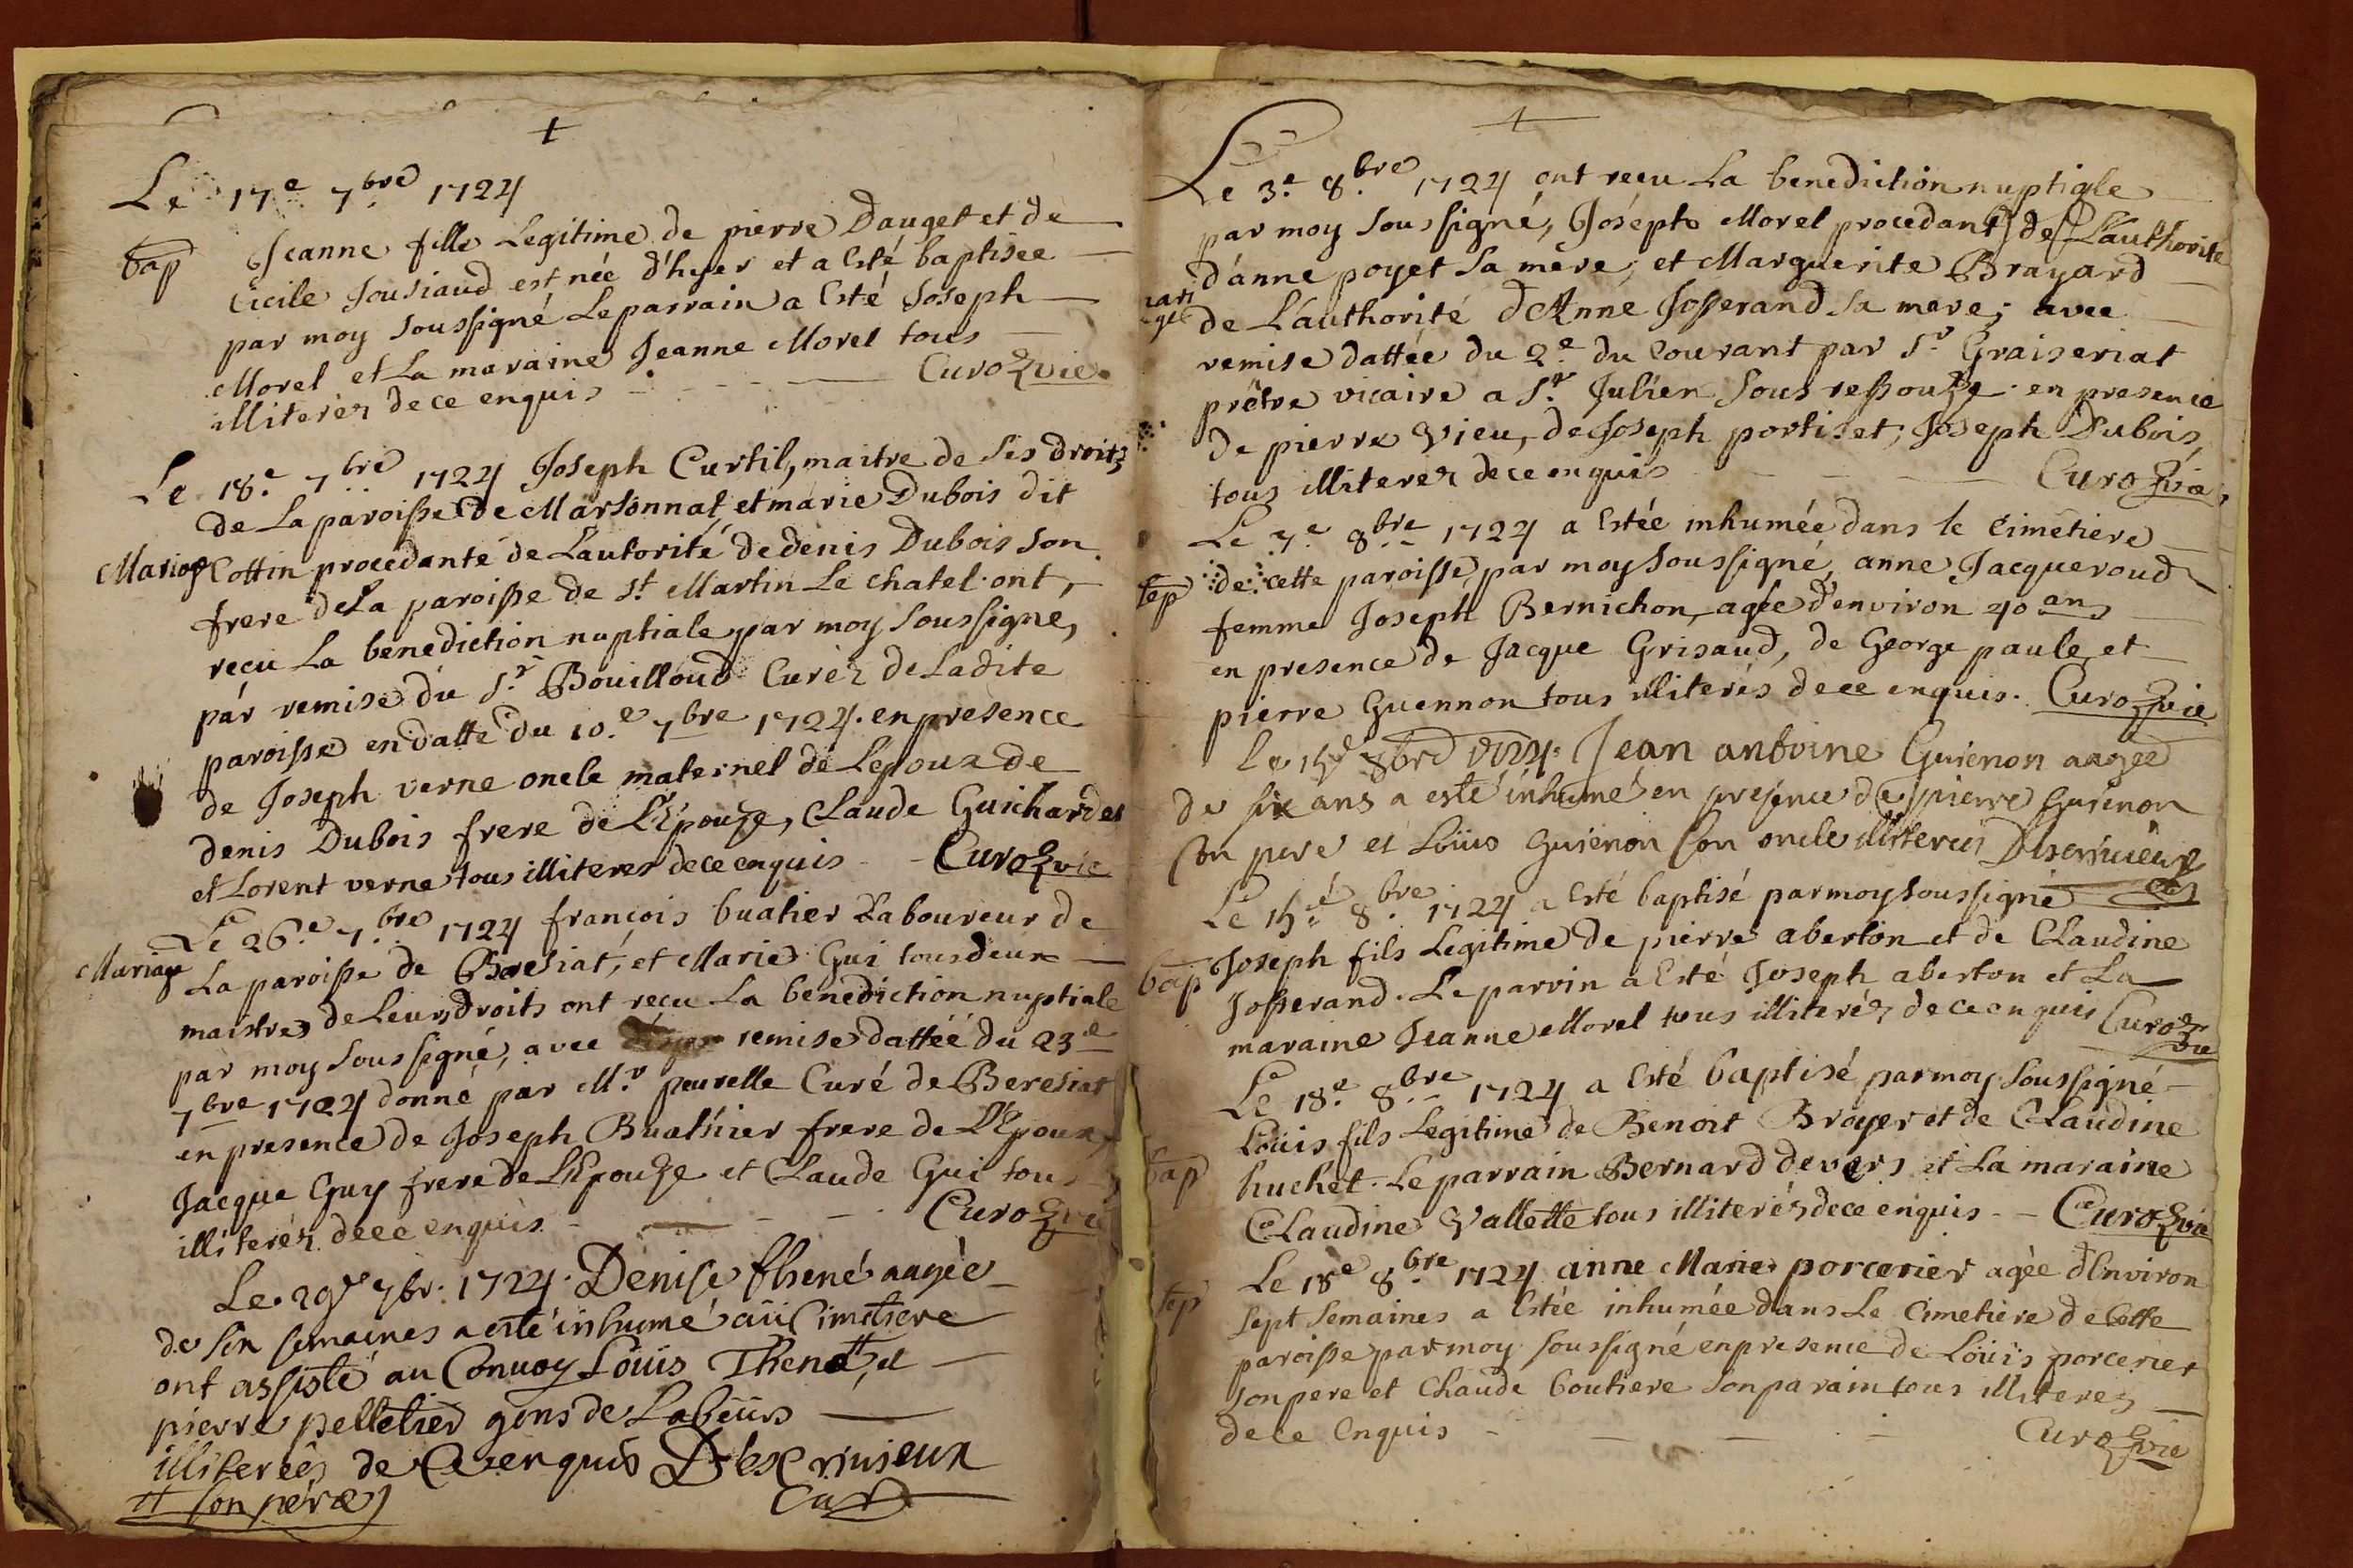 Le 17e 7bre 1724
bap Jeanne fille Legitime de pierre Dauget et de
Cicile Jousiaud est née d'hyer et a Esté baptisée
par moy soussigné Le parrain a Esté Joseph
Morel et La maraine Jeanne Morel tous
illiterez de ce enquis Curoz vic.
Le 18e 7bre 1724 Joseph Curtil, maitre de ses droitz
de La paroisse de Marsonnat et marie Dubois dit
Mariage Cottin procedante de L'autorité de denis Dubois son
frere de La paroisse de st Martin Le chatel ont,
reçu La benediction nuptiale par moy soussigne,
par remise du sr Bouilloud Curéz de Ladite
paroisse en datte du 10e 7bre 1724. en presence
de Joseph verne oncle maternel de Lepoux de
denis Dubois frere de L'Epouze, Claude Guichard et
et Lorent verne tous illiteres de ce enquis Curoz vic
Le 26e 7bre 1724 françois buatier Laboureur de
Mariage La paroisse de Beresiat, et Marie Gui tous deux
maistres de Leurs droits ont reçu La benediction nuptiale
par moy soussigné, avec remise dattée du 23e
7bre 1724 donné par Mr peurelle Curé de Beresiat
en presence de Joseph Buathier frere de L'Epoux,
Jacque Guy frere de L'Epouze et Claude Gui tous
illiteréz de ce enquis Curoz vic
Le 29e 7br. 1724. Denise thené aagée
de six semaines a esté inhumé au Cimetiere
ont assisté au Convoy Loüis Thenet # et
pierre pelletier gens de Labeurs
illiterées de Ce enquis Descrivieux
# son père Curé
Le 3e 8bre 1724 ont reçu La benediction nuptiale
par moy soussigné, Joseph Morel procedant de L'authorité
d'anne poyet sa mère, et Marguerite Brayard
mariage de L'authorité d'Anne Josserand sa mere; avec
remise dattée du 2e du Courant par sr Graiseriat
prêtre vicaire a st Julien sous ressouze en presence
de pierre Vieu, de Joseph portiset, Joseph Dubois,
tous illiterez de ce enquis Curoz vic
Le 7e 8bre 1724 a Estée inhumée dans le Cimetiere
sep de cette paroisse, par moy soussigné, anne Jacqueroud
femme Joseph Bernichon, agée d'environ 40 ans
en presence de Jacque Grisaud, de George paule et
pierre Guennon tous illiterés de ce enquis. Curoz vic
Le 15e 8bre 1724. Jean antoine Guienon aagée
de six ans a esté inhumé en presence de pierre Guienon
son pere et Loüis Guienon son oncle illiterés Descrivieux
Le 15e 8bre 1724 a Esté baptisé par moy soussigné
bap Joseph fils Legitime de pierre aberton et de Claudine
Josserand. Le parrin a Esté Joseph aberton et La
maraine Jeanne Morel tous illiteréz de ce enquis Curoz vic
Le 18e 8bre 1724 a Esté baptisé par moy soussigné
Loüis fils Legitime de Benoit Broyer et de Claudine
bap huchet. Le parrain Bernard devers et La maraine
Claudine Vallette tous illiteréz de ce enquis Curoz vic
Le 18e 8bre 1724 anne Marie porcerier agée d'Environ
sep sept semaines a Estée inhumée dans Le Cimetiere de Cette
paroisse par moy soussigné en presence de Loüis porcerier
son pere et Claude boutiere son parain tous illiterez
de ce Enquis Curoz vic